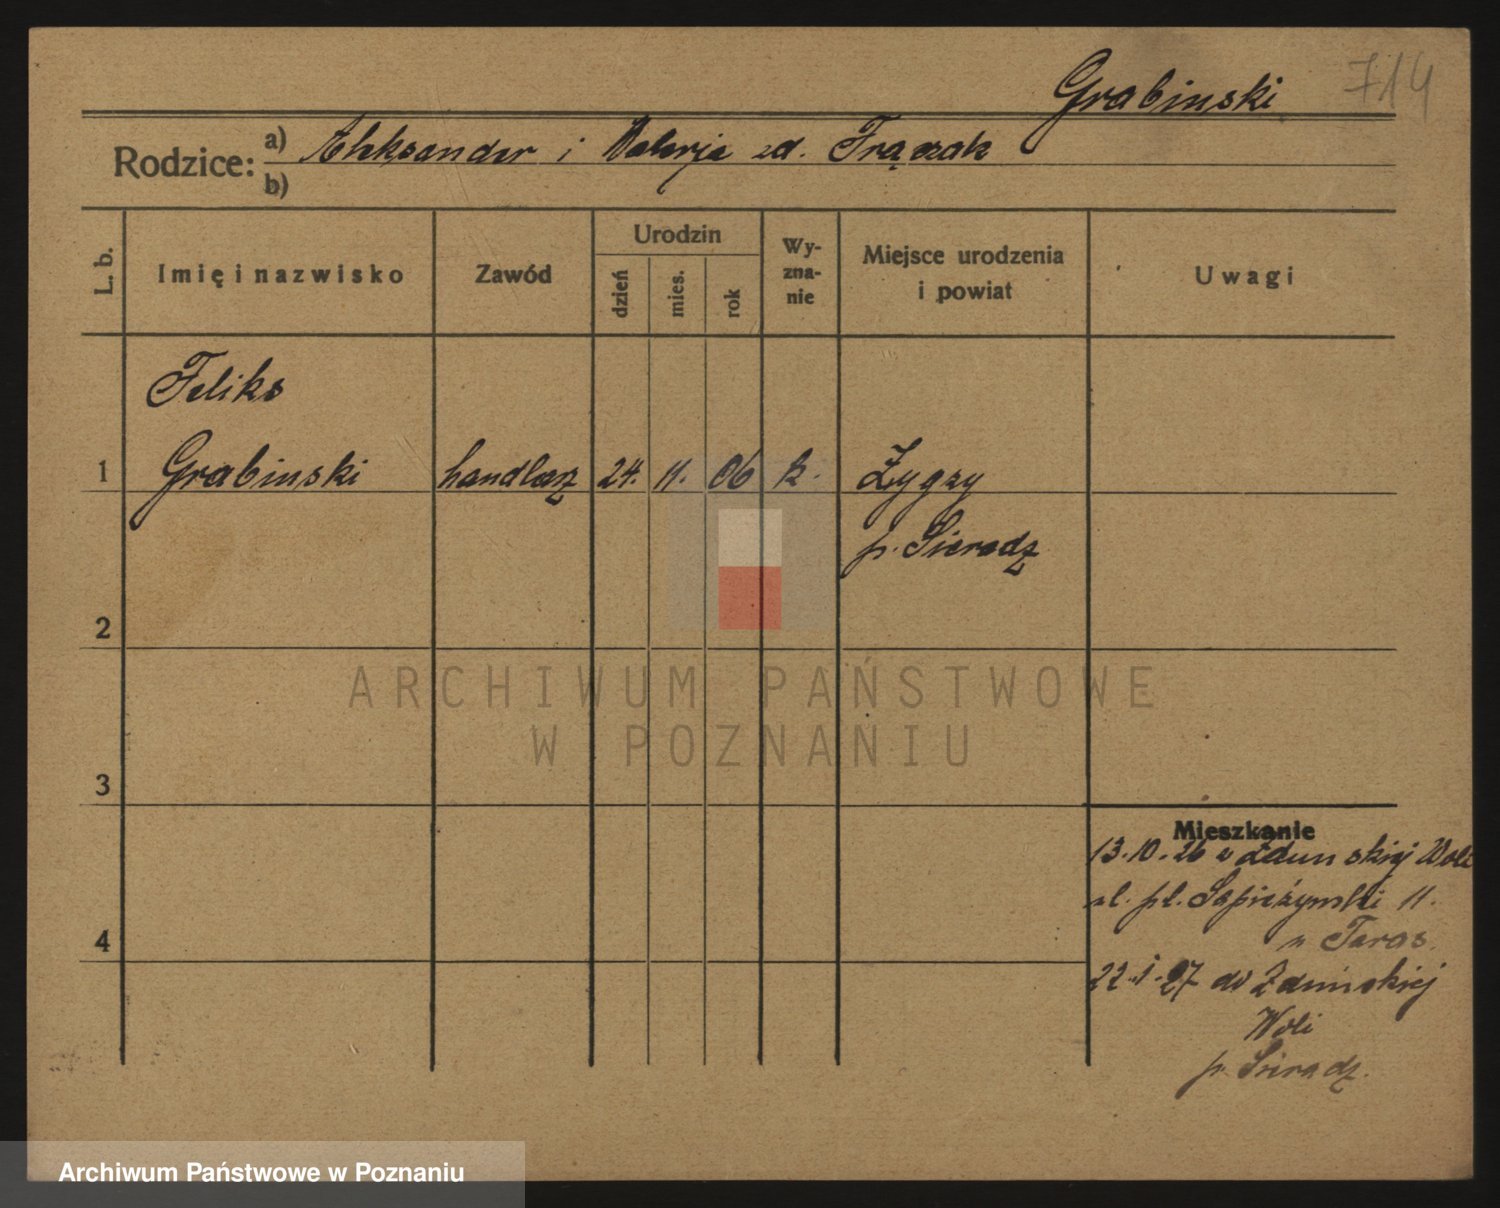 Grabinski 714
Rodzice: a) Aleksander i Walerja zd. Frączak
b)
L. b. Imię i nazwisko Zawód Urodzin dzień mies. rok Wyznanie Miejsce urodzenia i powiat Uwagi
Feliks
1 Grabinski handlarz 24. 11. 06 k. Zygry
p. Sieradz
2
ARCHIWUM PAŃSTWOWE
W POZNANIU
3
Mieszkanie
13.10.26 z Zduńskiej Woli
pl. Sapieżyński 11.
u Taras.
4
22.1.27 do Zduńskiej
Woli
p. Sieradz.
Archiwum Państwowe w Poznaniu